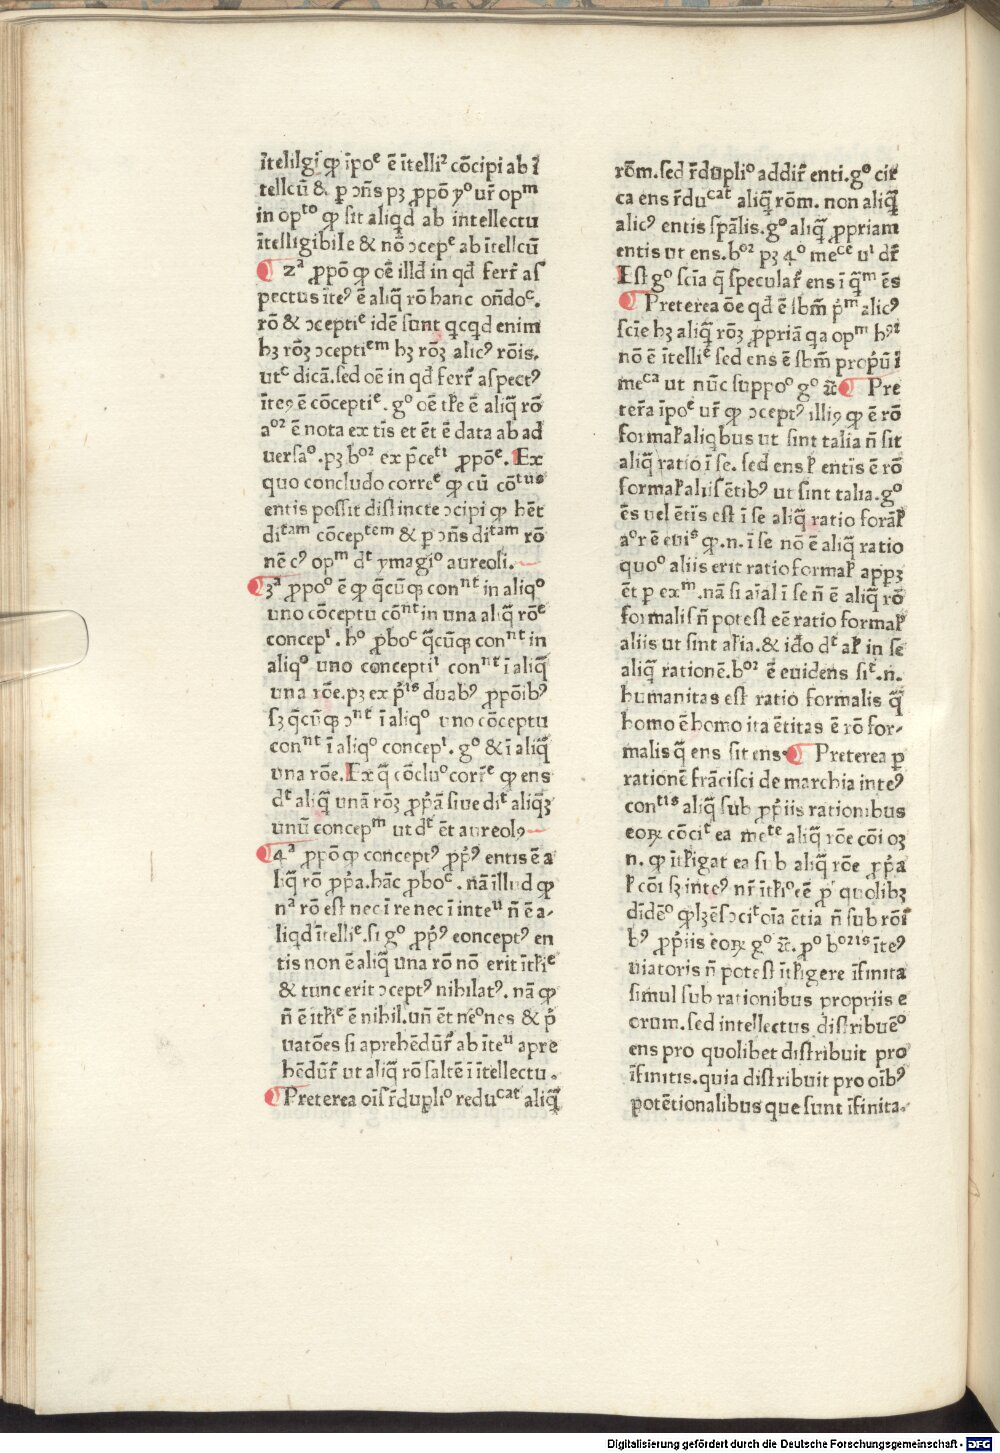 ītelilgi ꝙ īpoᵉ ē ītelliᶻ cōcipi ab ī
tellcū & ꝑ ɔn̄s pꝫ ꝓpō yᵒ ur̄ opᵐ
in opᵗᵒ ꝙ sit aliqd ab intellectu
ītelligibile & nō ɔcepᵉ ab ītellcū
2ᵃ ꝓpō ꝙ oē illđ in qđ ferr̄ as
pectus īteꝰ ē aliq̄ rō hanc on̄doᶜ.
rō & ɔceptiᵉ idē sunt qcqd enim
hꝫ rōꝫ ɔceptiᵉᵐ hꝫ rōꝫ alicꝰ rōis.
utᶜ dicā. sed oē in qđ ferr̄ aspectꝰ
īteꝰ ē cōceptiᵉ. gᵒ oē tłe ē aliq̄ rō
aᵒ² ē nota ex tīs et ēt ē data ab ad
uersaᵒ. pꝫ hᵒ² ex p̄ceᵗⁱ ꝓpōᵉ. Ex
quo concludo correᵉ ꝙ cū cōᵗᵘˢ
entis possit distincte ɔcipi ꝙ hēt
diᵗᵃᵐ cōcepᵗᵉᵐ & ꝑ ɔn̄s diᵗᵃᵐ rō
nē cꝰ opᵐ dᵗ ymagiᵒ aureoli.
3ᵃ ꝓpoᵒ ē ꝙ q̄cūqꝫ conⁿᵗ in aliqᵒ
uno cōceptu cōⁿᵗ in una aliq̄ rōᵉ
concepⁱ. hᵒ ꝓboᶜ q̄cūqꝫ conⁿᵗ in
aliqᵒ uno conceptiⁱ conⁿᵗ ī aliq̄
una rōe. pꝫ ex p̄ⁱˢ duabꝰ ꝓpōibꝰ
sꝫ q̄cūqꝫ ɔⁿᵗ ī aliqᵒ uno cōceptu
conⁿᵗ ī aliqᵒ concepⁱ. gᵒ & ī aliq̄
una rōe. Ex q̄ cōcluᵒ corr̄ᵉ ꝙ ens
dᵗ aliq̄ unā rōꝫ ꝓp̄ā siue diᵗ aliqꝫ
unū concepᵐ ut dᵗ ēt aureolꝰ
4ᵃ ꝓpō ꝙ conceptꝰ ꝓp̄ꝰ entis ē a
liq̄ rō ꝓp̄a. hāc ꝓboᶜ. nā illud ꝙ
nᵃ rō est nec ī re nec ī inteᵘ n̄ ē a-
liqd ītelliᵉ. si gᵒ ꝓp̄ꝰ conceptꝰ en
tis non ē aliq̄ una rō nō erit ītłiᵉ
& tunc erit ɔceptꝰ nihilatꝰ. nā ꝙ
n̄ ē ītłiᵉ ē nihil. un̄ ēt neᵒnes & p̄
uatōes si aprehēdūr̄ ab īteᵘ apre
hēdūr̄ ut aliq̄ rō saltē ī ītellectu.
Preterea oīs r̄dupliᵒ reducᵃᵗ aliq̄
rōm. sed r̄dupliᵒ addir̄ enti. gᵒ cir̄
ca ens r̄ducᵃᵗ aliq̄ rōm. non aliq̄
alicꝰ entis sp̄alis. gᵒ aliq̄ ꝓpriam
entis ut ens. hᵒ² pꝫ 4ᵒ meᶜᵉ uⁱ dr̄
Est gᵒ scīa q̄ speculat̄ ens ī q̄ᵐ ēs
Preterea ōe qđ ē sbm̄ p̄ᵐ alicꝰ
scīe hꝫ aliq̄ rōꝫ ꝓpriā qa opᵐ hᵒ²
nō ē ītelliᵉ sed ens ē sbm̄ prop̄ū ī
meᶜᵃ ut nūc suppoᵒ gᵒ ⁊c̄ Pre
ter̄a īpoᵉ ur̄ ꝙ ɔceptꝰ illiꝰ ꝙ ē rō
formał aliqbus ut sint talia n̄ sit
aliq̄ ratio ī se. sed ens ł entis ē rō
formał aliis ētibꝰ ut sint talia. gᵒ
ēs uel ētīs est ī se aliq̄ ratio forał
aᵒr ē euiˢ ꝙ .n. ī se nō ē aliq̄ ratio
quoᵒ aliis erit ratio formał apꝑꝫ
ēt ꝑ exᵐ. nā si aīal ī se n̄ ē aliq̄ rō
formalis n̄ potest eē ratio formał
aliis ut sint alia. & iđo dᵗ al̄ in se
aliq̄ rationē. hᵒ² ē euidens siᵗ .n.
humanitas est ratio formalis q̄
homo ē homo ita ētitas ē rō for-
malis q̄ ens sit ens Preterea ꝑ
rationē frācisci de marchia inteꝰ
conᵗⁱˢ aliq̄ sub ꝓp̄iis rationibus
eoꝝ cōciᵗ ea meᵗᵉ aliq̄ rōe cōi oꝫ
n. ꝙ ītłigat ea sub aliq̄ rōe ꝓp̄a
ł cōi sꝫ inteꝰ nr̄ ītłiᵒ eē pⁱ quolibꝫ
dīdēᵒ ꝙ lꝫ ēs ɔciᵗ oīa ētia n̄ sub rōī
bꝰ ꝓp̄iis eoꝝ gᵒ ⁊c̄. pᵒ hᵒ²ⁱˢ īteꝰ
uiatoris n̄ potest ītłigere īfinita
simul sub rationibus propriis e
orum. sed intellectus distribuēᵒ
ens pro quolibet distribuit pro
īfinitis. quia distribuit pro oībꝰ
potētionalibus que sunt īfinita.
Digitalisierung gefördert durch die Deutsche Forschungsgemeinschaft - DFG